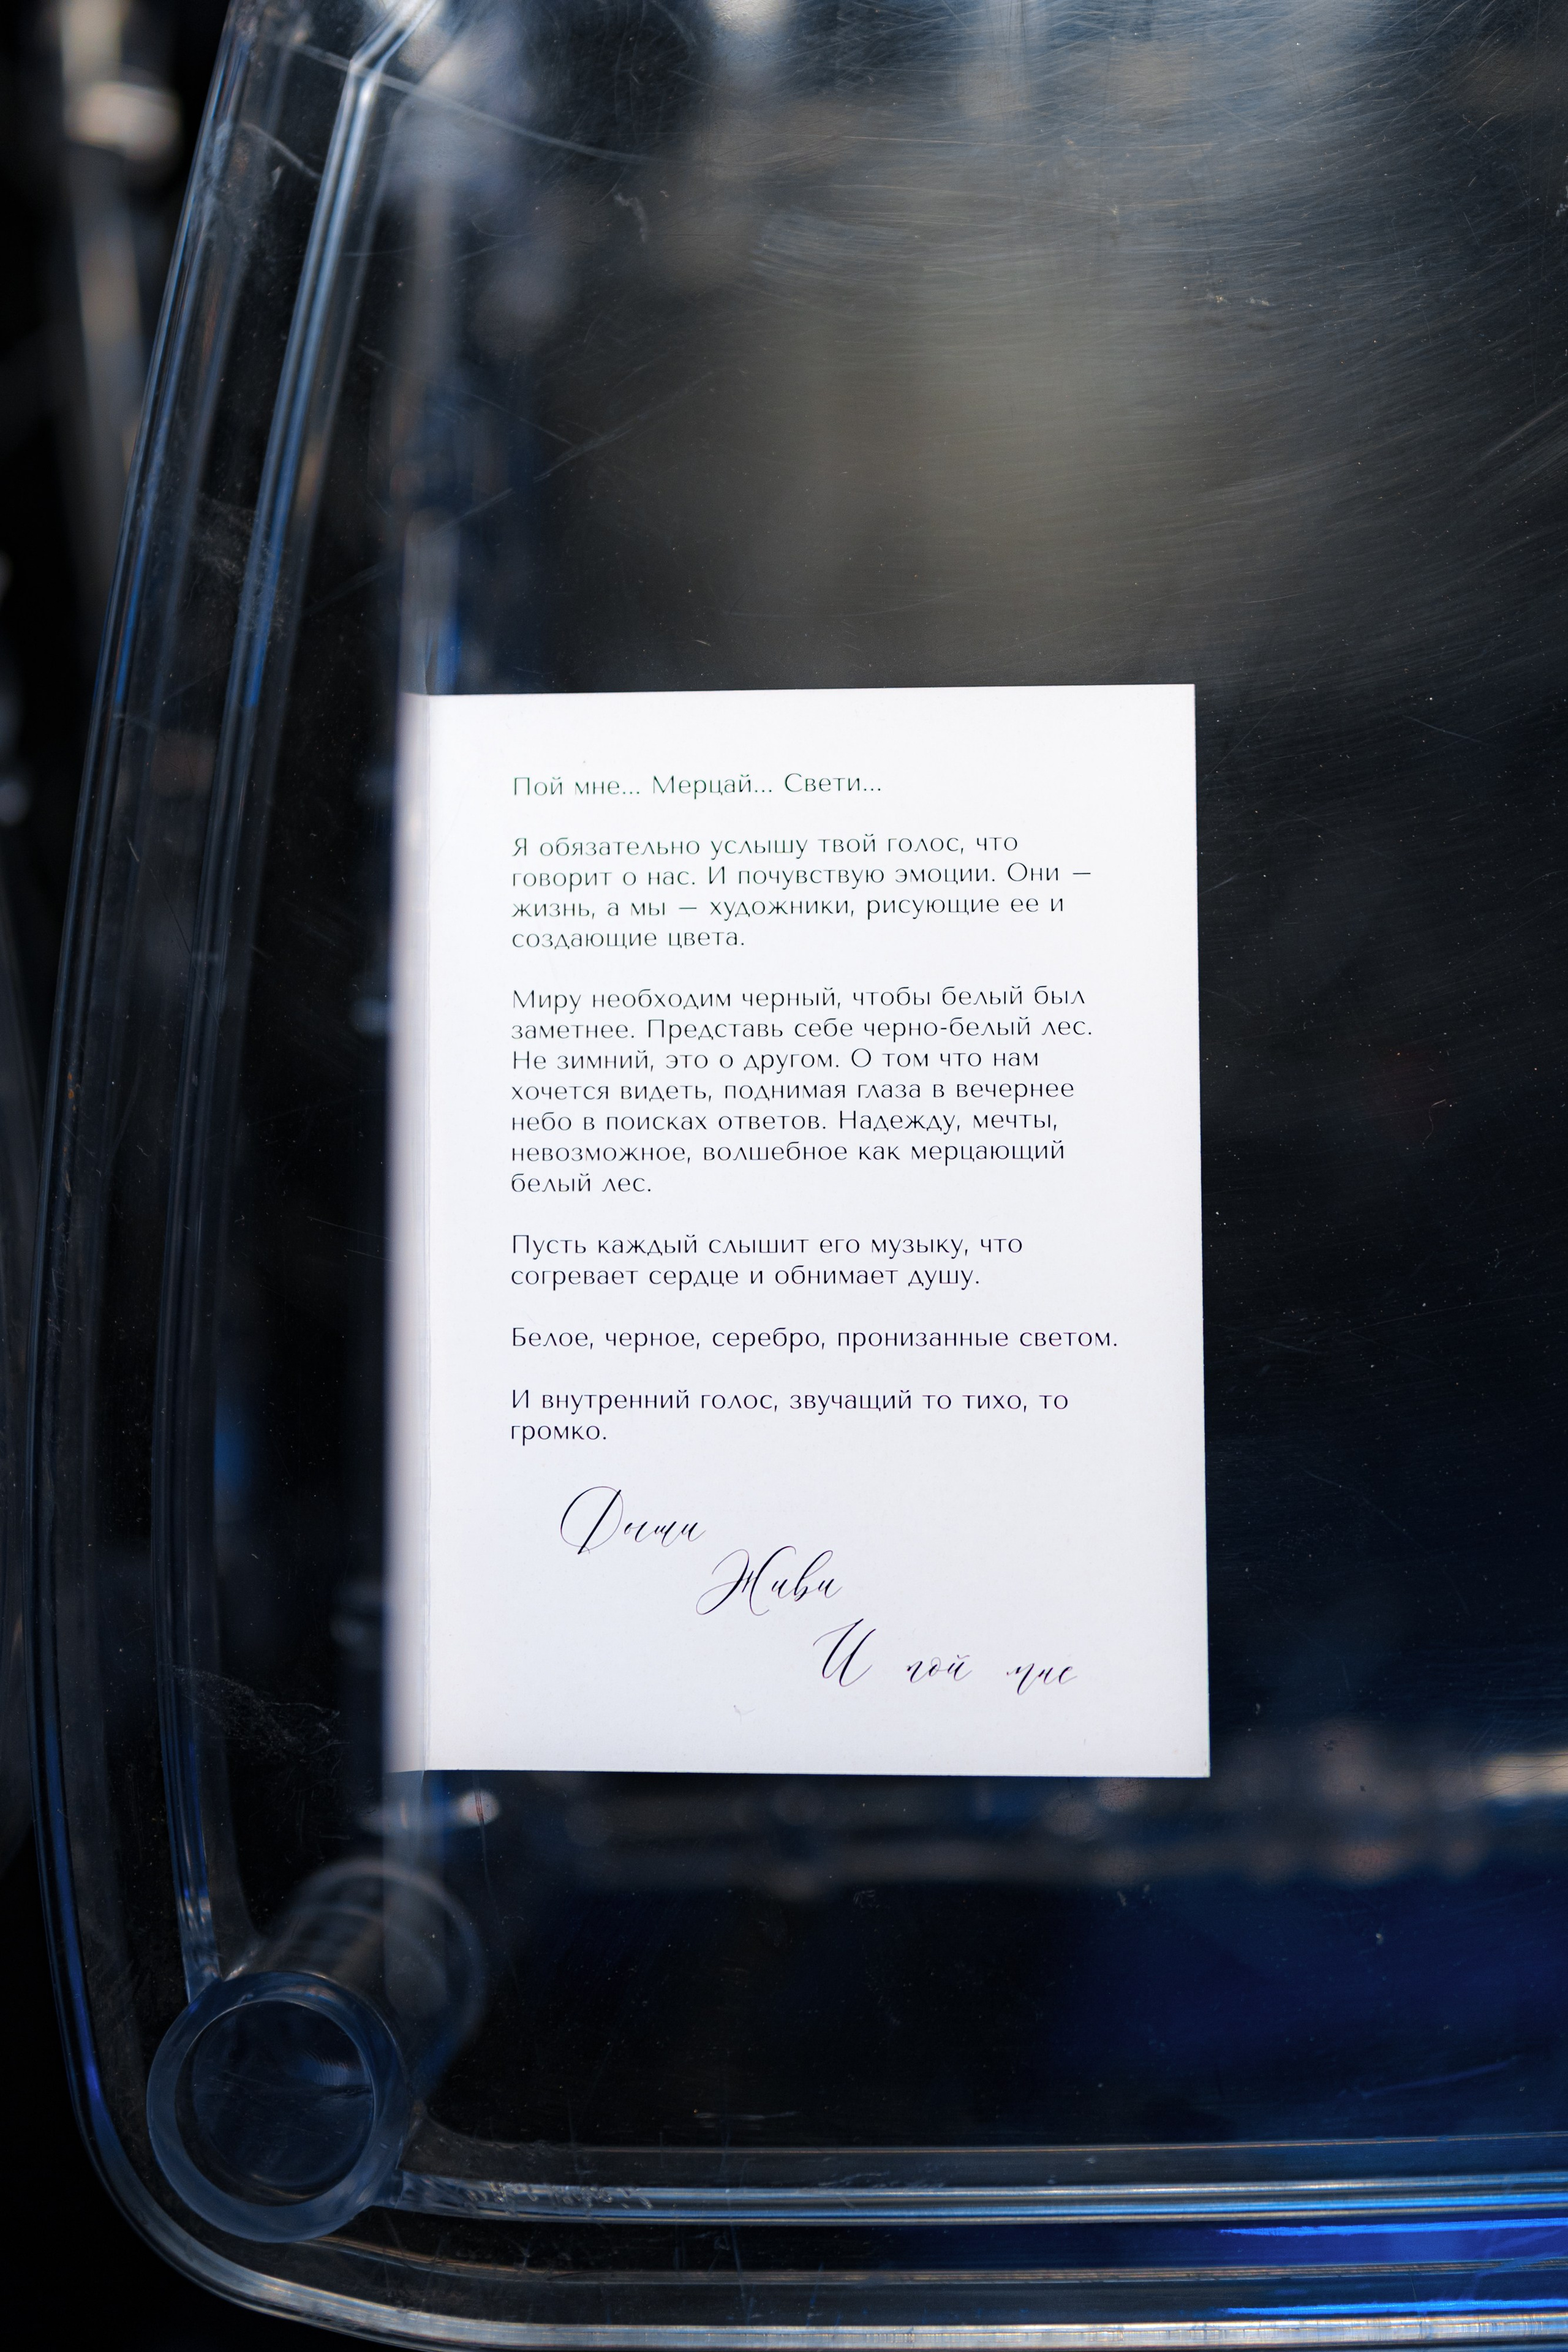 Пой мне... Мерцай... Свети...
Я обязательно услышу твой голос, что
говорит о нас. И почувствую эмоции. Они —
жизнь, а мы — художники, рисующие ее и
создающие цвета.
Миру необходим черный, чтобы белый был
заметнее. Представь себе черно-белый лес.
Не зимний, это о другом. О том что нам
хочется видеть, поднимая глаза в вечернее
небо в поисках ответов. Надежду, мечты,
невозможное, волшебное как мерцающий
белый лес.
Пусть каждый слышит его музыку, что
согревает сердце и обнимает душу.
Белое, черное, серебро, пронизанные светом.
И внутренний голос, звучащий то тихо, то
громко.
Дыши
Живи
И пой мне